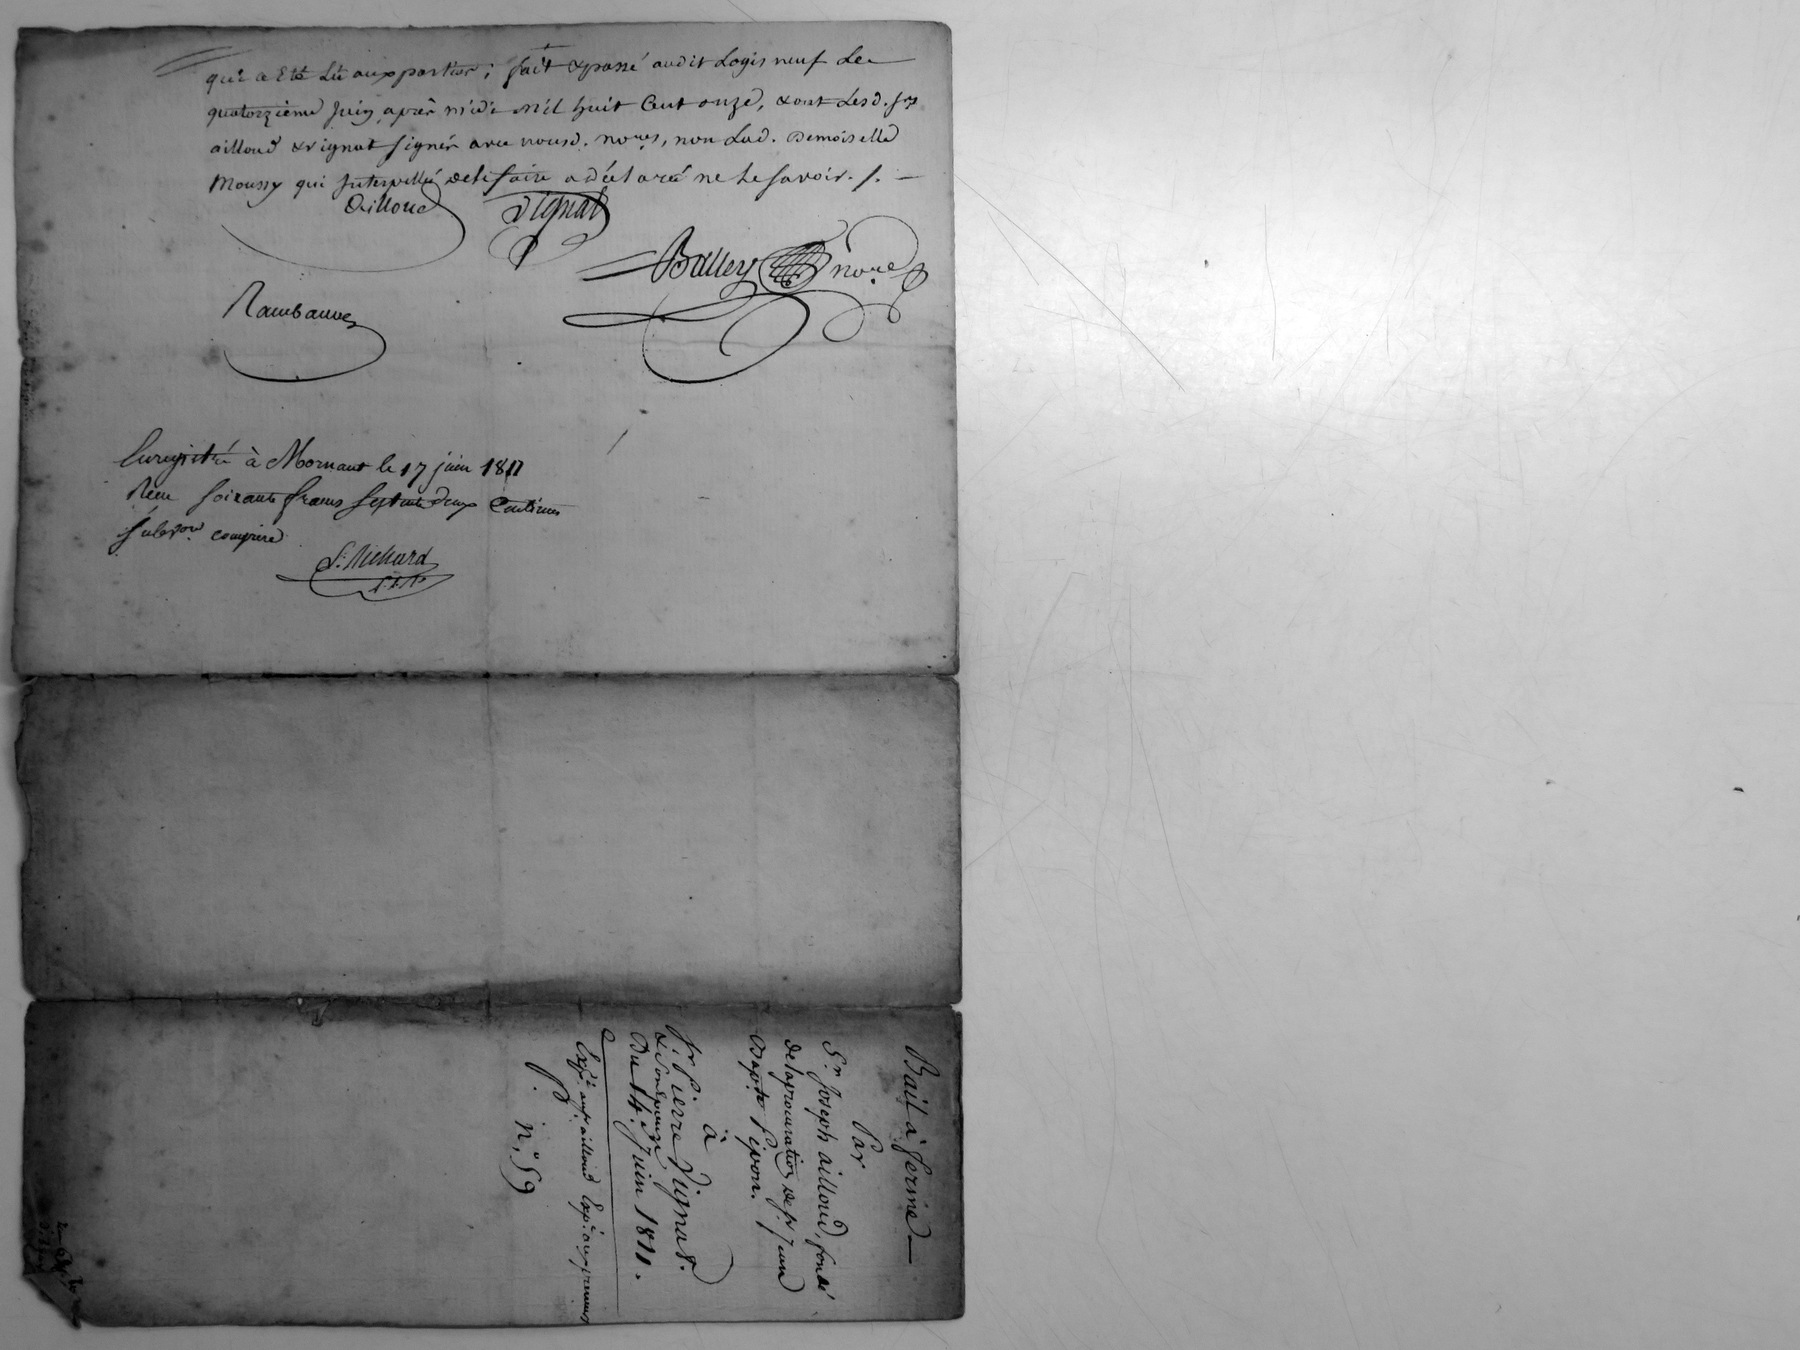 qui a Eté Lû aux parties; fait & passé audit Logis neuf Le
quatorzieme Juin après midi Mil huit Cent onze, & ont Lesd. Srs
ailloud & vignat signés avec nousd. nores, non Lad. Demoiselle
Moussy qui Interpellée de le faire a déclaré ne le savoir ./. —
Ailloud
Vignat
Balley nore
Rambaud
Enregistré à Mornant le 17 juin 1811
Recu soixante francs septante deux Centimes
subvon comprise
S. Richard
Bail à ferme
Par
Sr. Joseph ailloud, fondé
de la procuration de Sr. Jean
Bapte
à
Sr. Pierre Vignat.
& Son Epouse
Du 14. Juin 1811.
Expé. au Sr. ailloud Expé. aux preneurs
P.
n.° 59